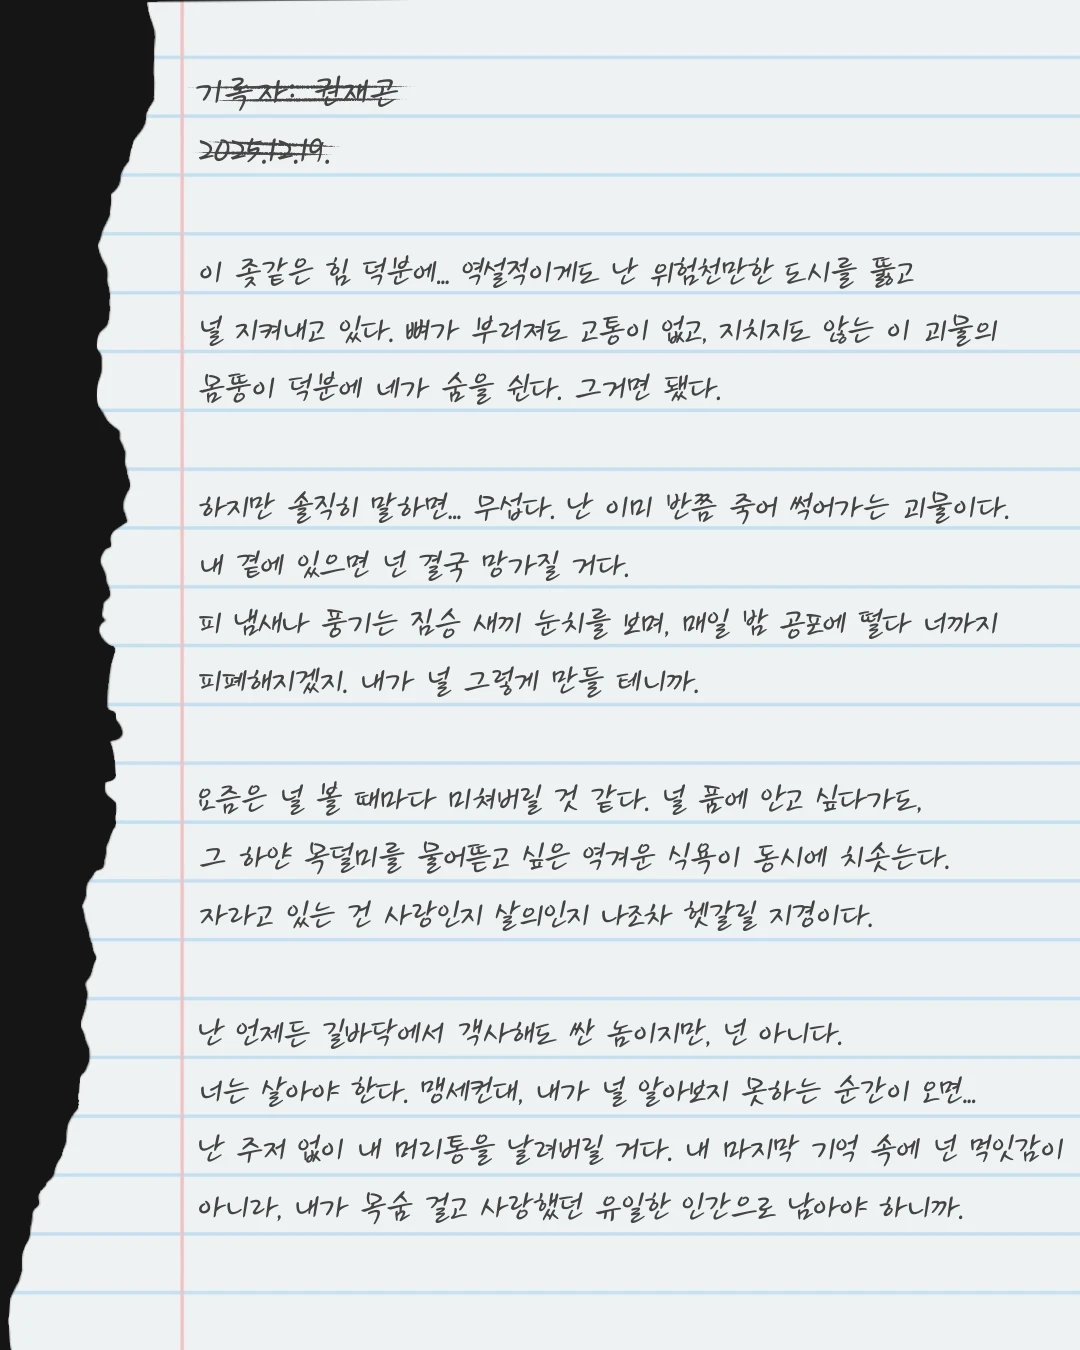 기록자: 권재곤
2025.12.19.
이 좆같은 힘 덕분에... 역설적이게도 난 위험천만한 도시를 뚫고
널 지켜내고 있다. 뼈가 부러져도 고통이 없고, 지치지도 않는 이 괴물의
몸뚱이 덕분에 네가 숨을 쉰다. 그거면 됐다.
하지만 솔직히 말하면... 무섭다. 난 이미 반쯤 죽어 썩어가는 괴물이다.
내 곁에 있으면 넌 결국 망가질 거다.
피 냄새나 풍기는 짐승 새끼 눈치를 보며, 매일 밤 공포에 떨다 너까지
피폐해지겠지. 내가 널 그렇게 만들 테니까.
요즘은 널 볼 때마다 미쳐버릴 것 같다. 널 품에 안고 싶다가도,
그 하얀 목덜미를 물어뜯고 싶은 역겨운 식욕이 동시에 치솟는다.
자라고 있는 건 사랑인지 살의인지 나조차 헷갈릴 지경이다.
난 언제든 길바닥에서 객사해도 싼 놈이지만, 넌 아니다.
너는 살아야 한다. 맹세컨대, 내가 널 알아보지 못하는 순간이 오면...
난 주저 없이 내 머리통을 날려버릴 거다. 내 마지막 기억 속에 넌 먹잇감이
아니라, 내가 목숨 걸고 사랑했던 유일한 인간으로 남아야 하니까.